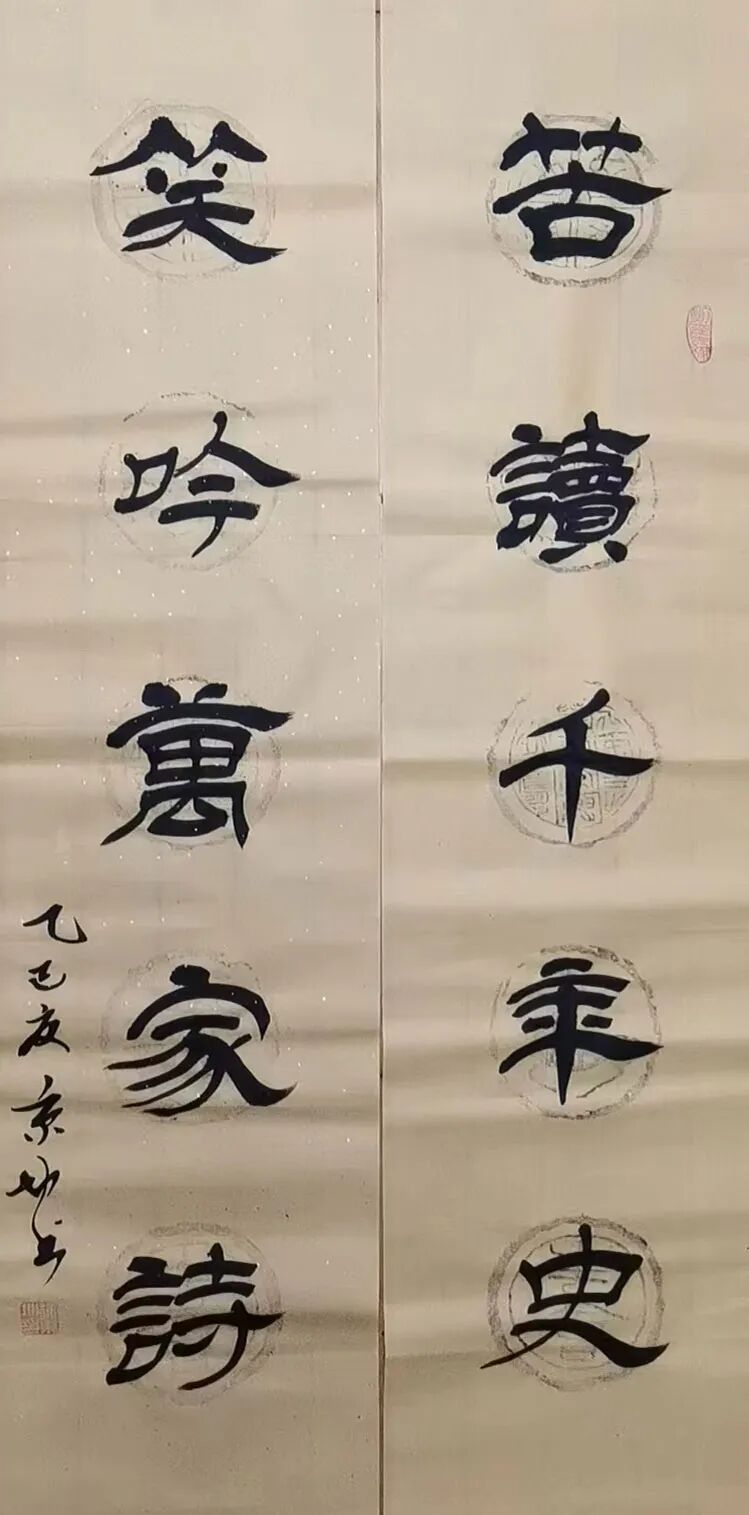 苦讀千年史
笑吟萬家詩
乙巳夜